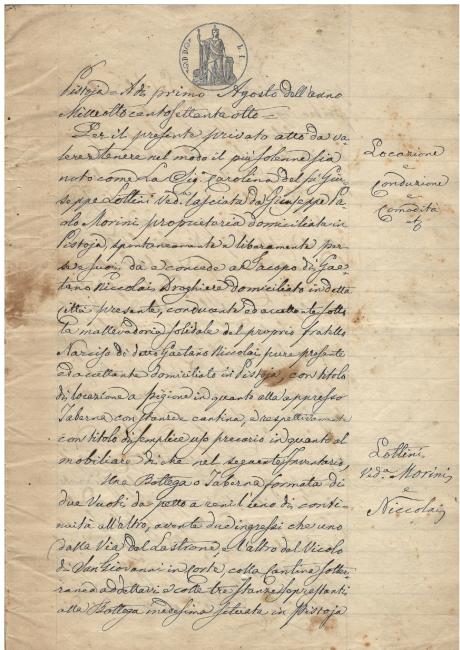 Pistoja = Adi primo Agosto dell'anno
Milleottocentosettantaotto =
Per il presente privato atto da va-
lere e tenere nel modo il più solenne sia
noto come La Sig. Carolina del fu Giu-
seppe Lottini Ved. lasciata da Giuseppe Pa-
olo Morini proprietaria domiciliata in
Pistoja, spontaneamente e liberamente per
se e suoi, da e concede al Jacopo di Gae-
tano Niccolai, Droghiere domiciliato in detta
città presente, conduante ed accettante sotto
la mallevadoria solidale del proprio fratello
Narciso di detto Gaetano Niccolai pure presente
ed accettante domiciliato in Pistoja, con titolo
di locazione a pigione in quanto alla appresso
Taberna con stanze e cantina, e respettivamente
con titolo di semplice uso precario in quanto al
mobiliare di che nel seguente Inventario,
Una Bottega o Taberna formata di
due Vuoti da petto a reni l'uno di conti-
nuità all'altro, avente due ingressi che uno
dalla Via del Lastrone, e l'altro dal Vicolo
di San Giovanni in Corte, colla Cantina sotter-
ranea ad dettavi e colle tre stanze soprastanti
alla Bottega medesima situata in Pistoja
Locazione
e
Conduzione
e
Comodità
Lottini
Ved.a Morini
e
Niccolai